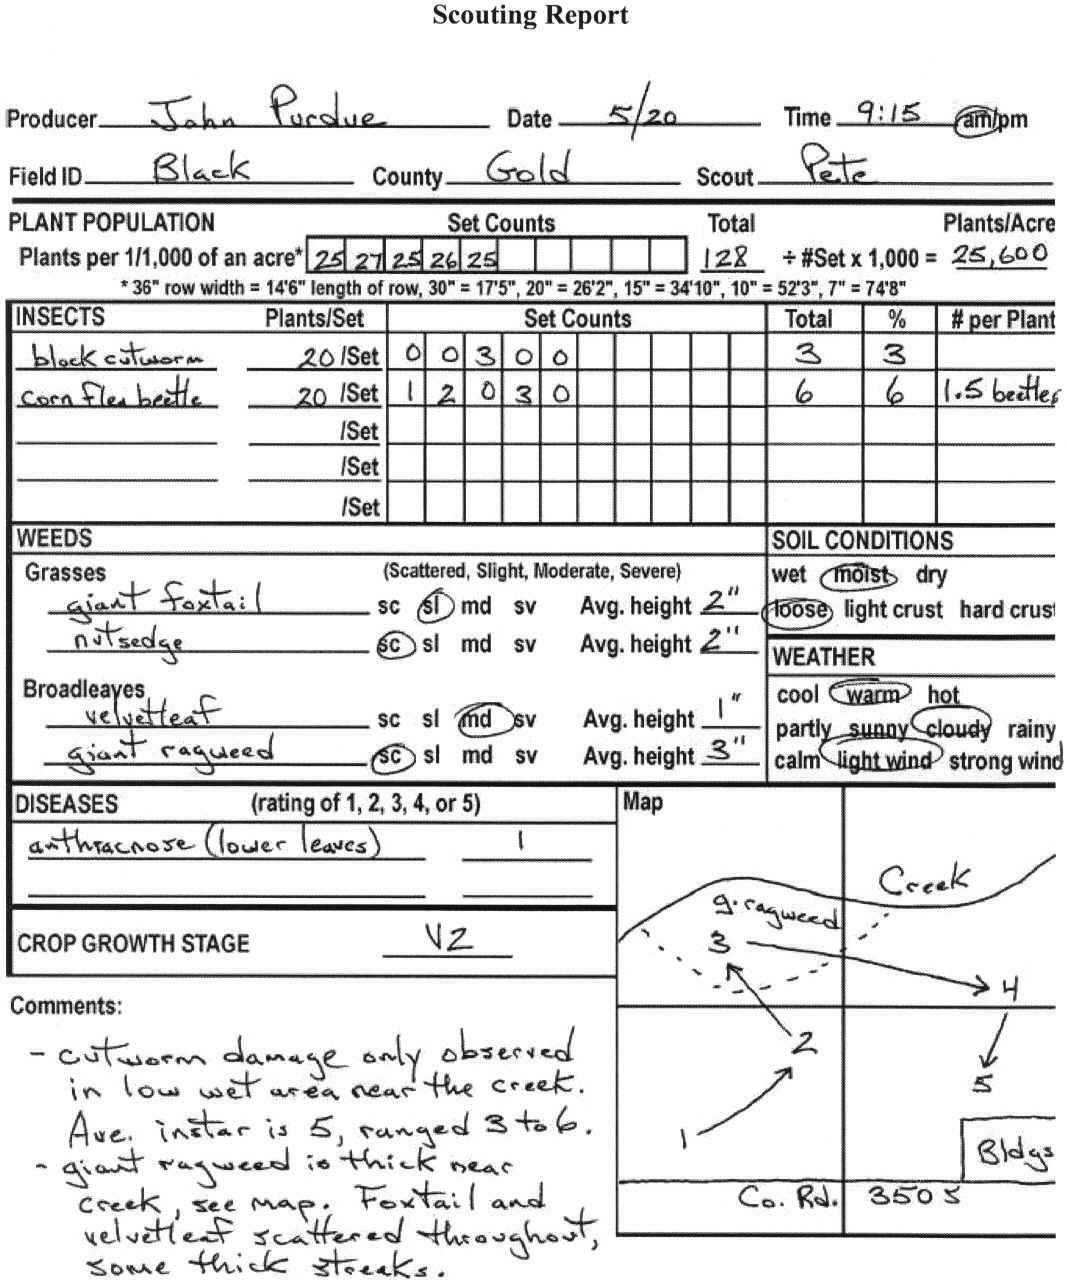 Scouting Report
Producer John Purdue Date 5/20 Time 9:15 am/pm
Field ID Black County Gold Scout Pete
PLANT POPULATION Set Counts Total Plants/Acre
Plants per 1/1,000 of an acre* 25 27 25 26 25 128 ÷ #Set x 1,000 = 25,600
* 36" row width = 14'6" length of row, 30" = 17'5", 20" = 26'2", 15" = 34'10", 10" = 52'3", 7" = 74'8"
INSECTS Plants/Set Set Counts Total % # per Plant
black cutworm 20 /Set 0 0 3 0 0 3 3
corn flea beetle 20 /Set 1 2 0 3 0 6 6 1.5 beetles
/Set
/Set
/Set
WEEDS
Grasses (Scattered, Slight, Moderate, Severe)
giant foxtail sc sl md sv Avg. height 2"
nutsedge sc sl md sv Avg. height 2"
Broadleaves
velvetleaf sc sl md sv Avg. height 1"
giant ragweed sc sl md sv Avg. height 3"
SOIL CONDITIONS
wet moist dry
loose light crust hard crust
WEATHER
cool warm hot
partly sunny cloudy rainy
calm light wind strong wind
DISEASES (rating of 1, 2, 3, 4, or 5)
anthracnose (lower leaves) 1
CROP GROWTH STAGE V2
Map
Creek
g. ragweed
3
4
2
5
1
Bldgs
Co. Rd. 350 S
Comments:
- cutworm damage only observed
in low wet area near the creek.
Ave. instar is 5, ranged 3 to 6.
- giant ragweed is thick near
creek, see map. Foxtail and
velvetleaf scattered throughout,
some thick streaks.